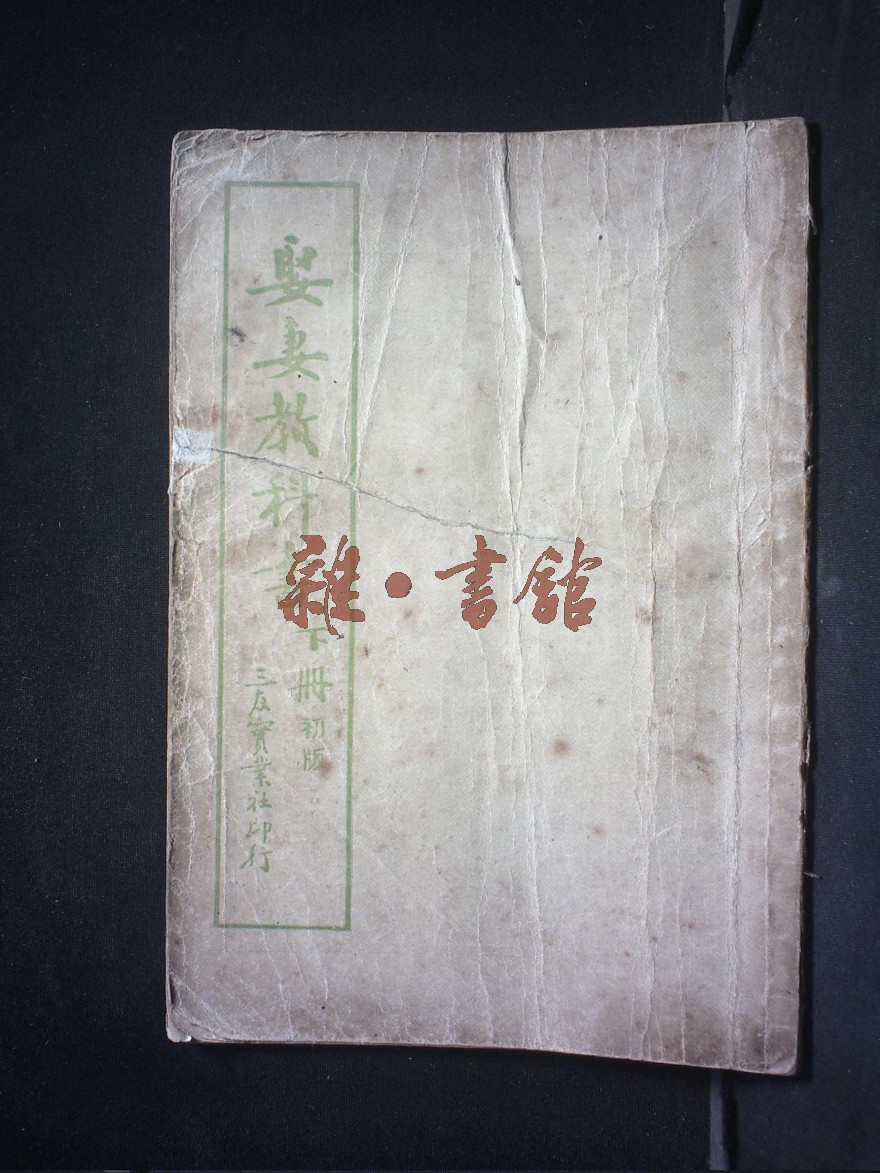 娶妻教科書
下冊
初版
三友實業社印行
雜·書舘